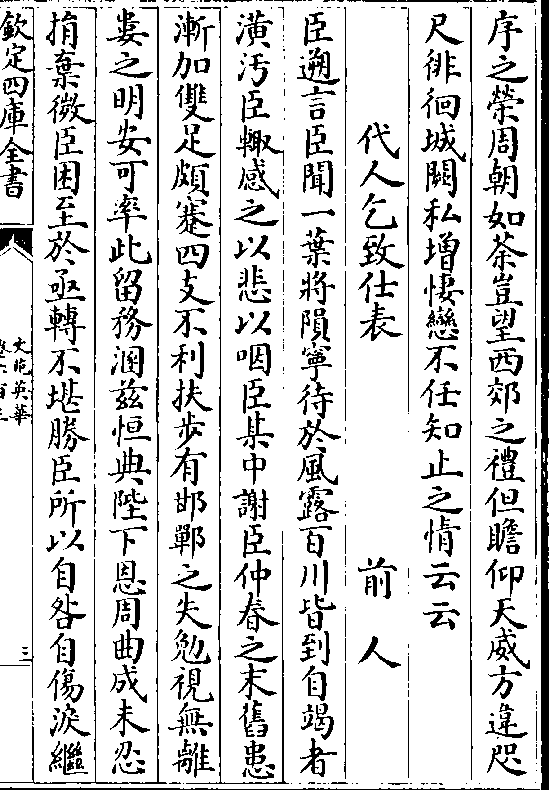 序之榮周朝如荼豈望西郊之禮但瞻仰天威方違咫
尺徘徊城闕私增悽戀不任知止之情云云
代人乞致仕表　前人
臣遡言臣聞一葉將隕寧待於風露百川皆到自竭者
潢汚臣輙感之以悲以咽臣某中謝臣仲春之末舊患
漸加雙足頗蹇四支不利扶步有邯鄲之失勉視無離
婁之明安可率此留務溷兹恒典陛下恩周曲成未忍
捐棄微臣困至於亟轉不堪勝臣所以自咎自傷淚繼
欽定四庫全書
文苑英華
卷六百三
三